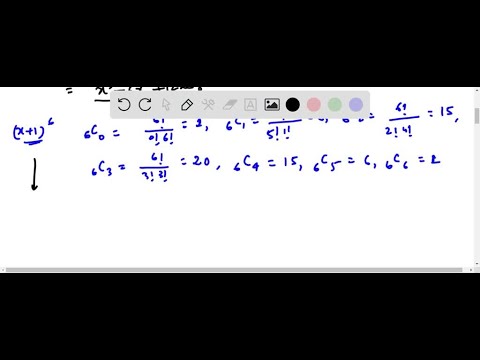 (x+1)^6 ₆C₀ = 6!/0!6! = 1, ₆C₁ = /5!1! = 6!/2!4! = 15,
₆C₃ = 6!/3!3! = 20, ₆C₄ = 15, ₆C₅ = 6, ₆C₆ = 1